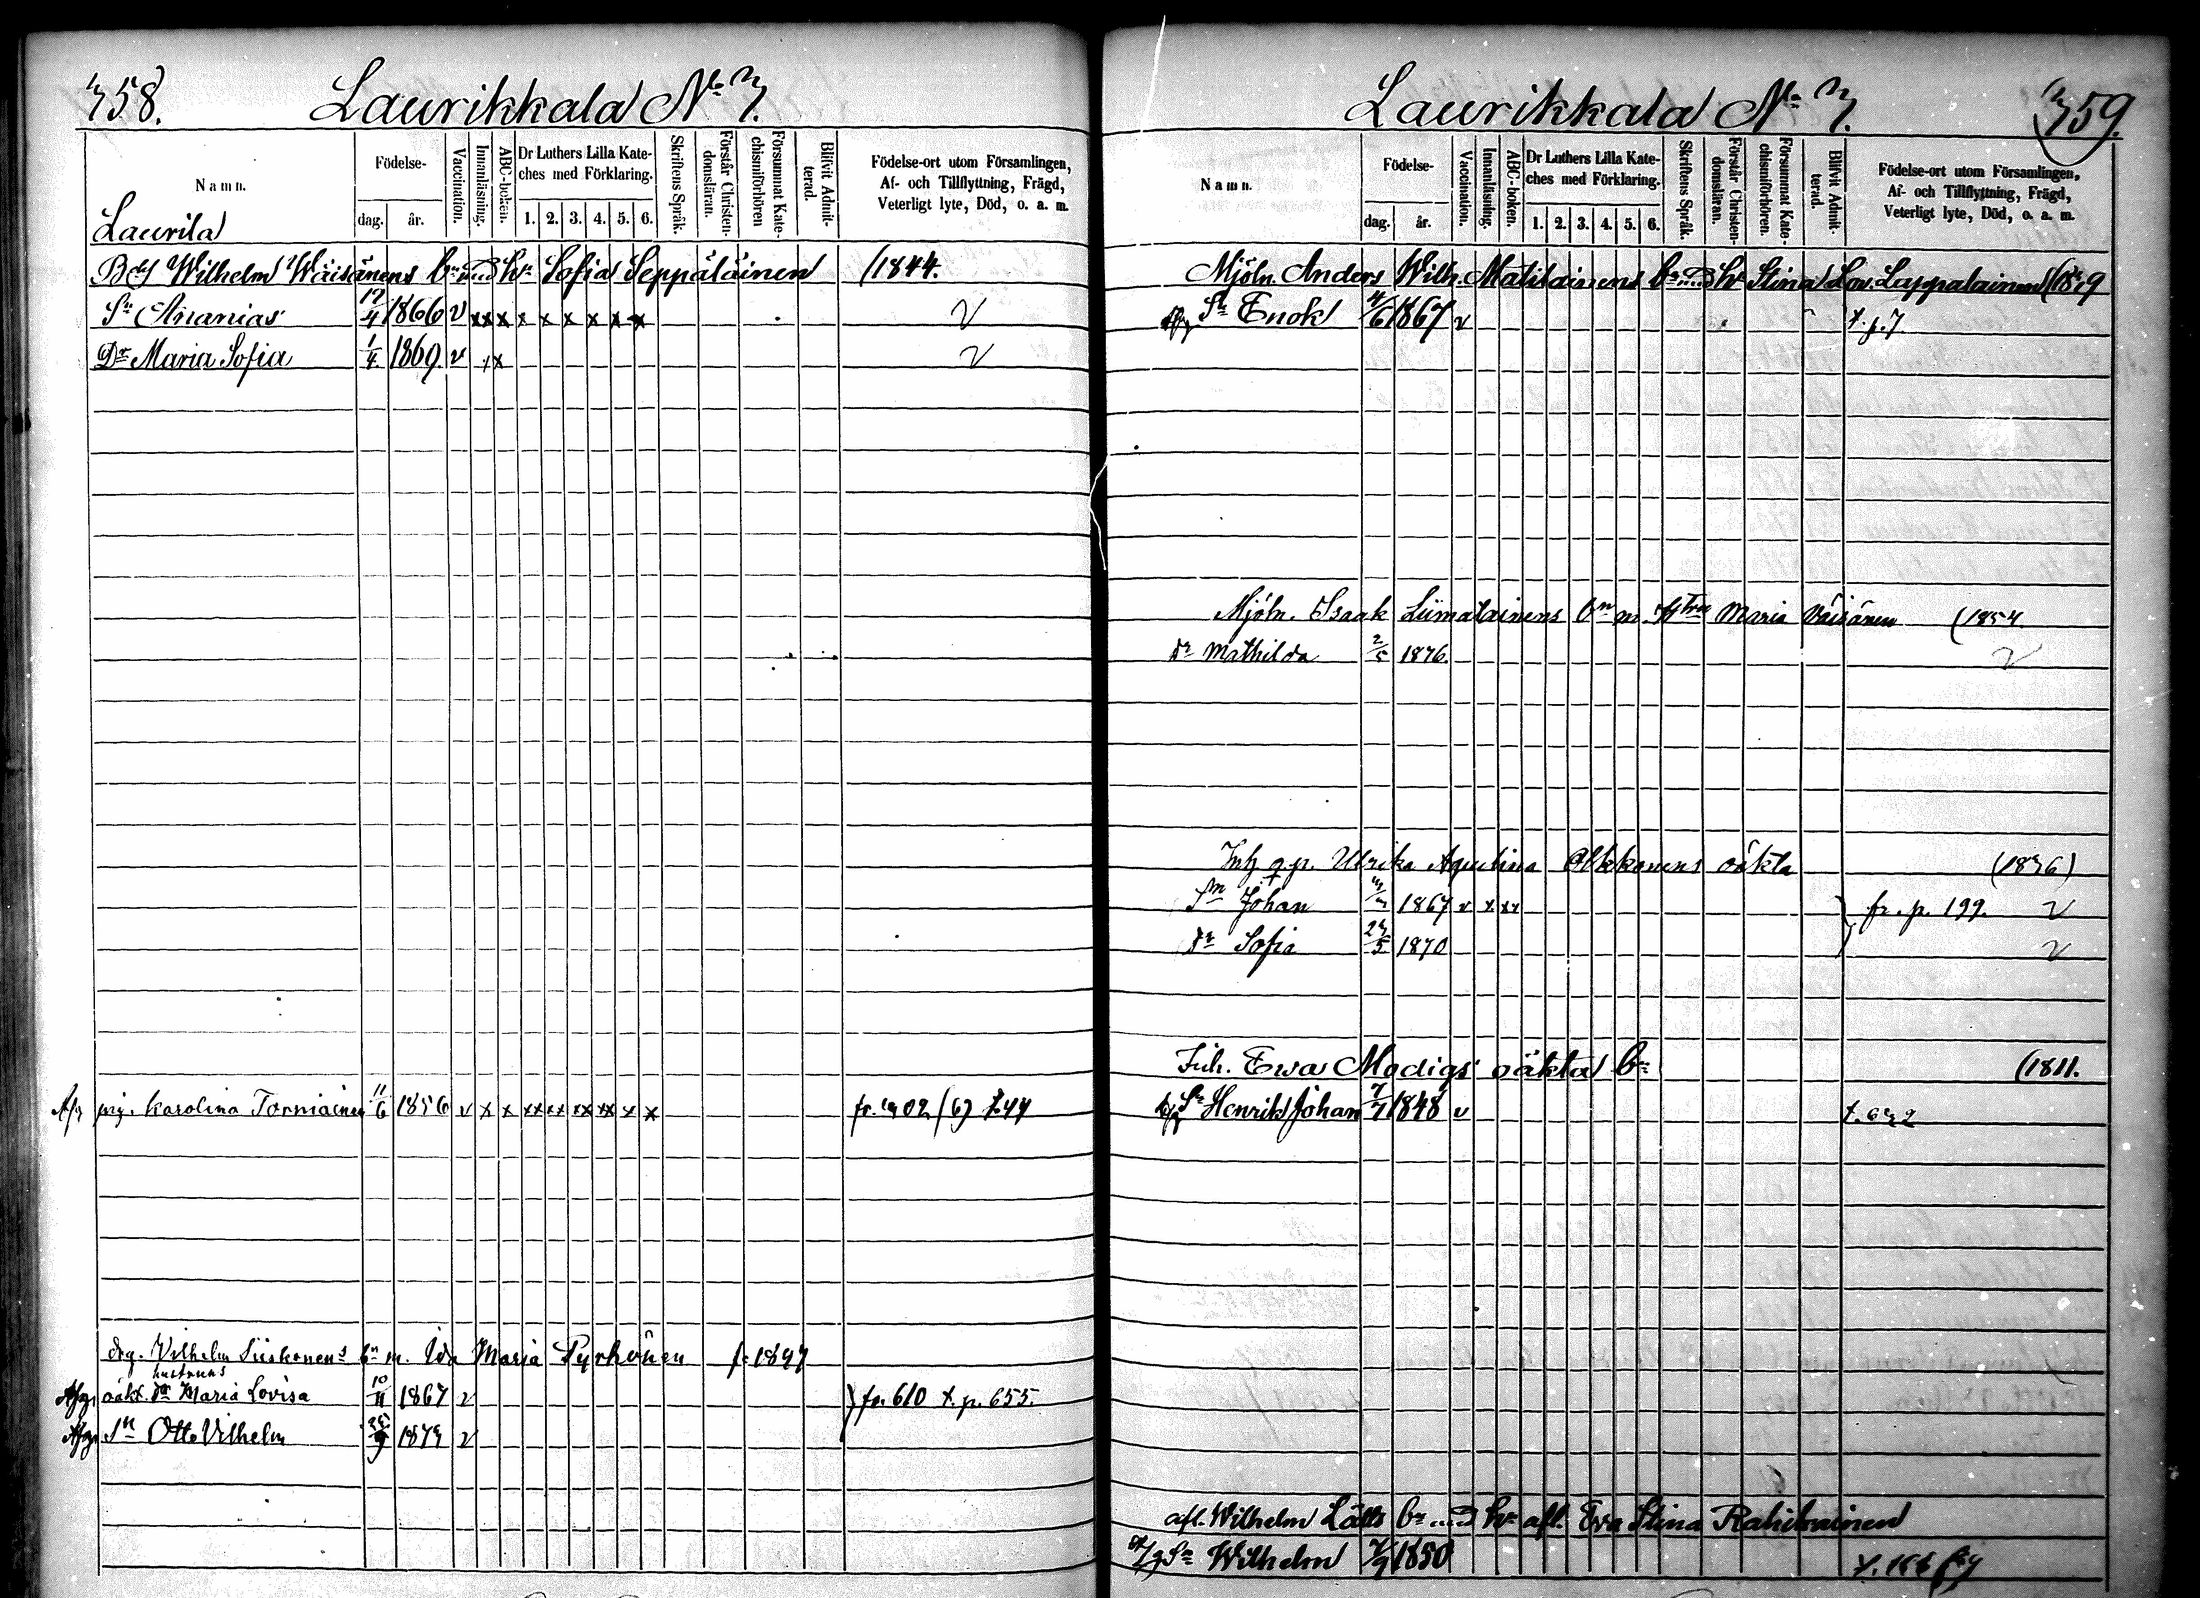 358.
Laurikkala No 3.
Namn.
Födelse-
dag.
år.
Vaccination.
Innanläsning.
ABC-boken.
Dr Luthers Lilla Kate-
ches med Förklaring.
1. 2. 3. 4. 5. 6.
Skriftens Språk.
Förstår Christen-
domsläran.
Försummat Kate-
chismiförhören
Blifvit Admit-
terad.
Födelse-ort utom Församlingen,
Af- och Tillflyttning, Frägd,
Veterligt lyte, Död, o. a. m.
Laurila
Wilhelm Wäisänens bn med hu Sofia Seppäläinen (1844.
Sn Ananias 17/4 1866 v x x x x x x x x x v
Dr Maria Sofia 1/4 1869. v x x v
Afg pig. Karolina Torniainen 11/6 1856 v x x xx xx xx xx x x
drg. Vilhelm Siiskonens bn m. Ida Maria Pyrhönen f. 1847
hustruns
Afg. oäkt. dr Maria Lovisa 10/11 1867 v fr. 610 t. p. 655.
Afg. Sn Otto Vilhelm 1873 v
Laurikkala No 3.
359.
Namn.
Födelse-
dag.
år.
Vaccination.
Innanläsning.
ABC-boken.
Dr Luthers Lilla Kate-
ches med Förklaring.
1. 2. 3. 4. 5. 6.
Skriftens Språk.
Förstår Christen-
domsläran.
Försummat Kate-
chismiförhören.
Blifvit Admit-
terad.
Födelse-ort utom Församlingen,
Af- och Tillflyttning, Frägd,
Veterligt lyte, Död, o. a. m.
Mjöln. Anders Wilh. Matilainens bn med hu Stina Lov. Lappalainen
Afg Sn Enok 4/6 1867 v t. p. 7.
Mjöln. Isaak Liimatainens bn m. hstru Maria Väisänen (1854
dr Mathilda 2/5 1876. v
Inh q.p. Ulrika Agustina Okkonens oäkta (1836)
Sn Johan 1867 v x xx fr. p. 199. v
dr Sofia 23/5 1870 v
Inh. Ewa Modigs oäkta bn (1811.
Afg Sn Henrik Johan 7/7 1848 v t. 632
afl. Wilhelm Lätts bn med hu afl. Eva Stina Rahikainen
Afg Sn Wilhelm 1850